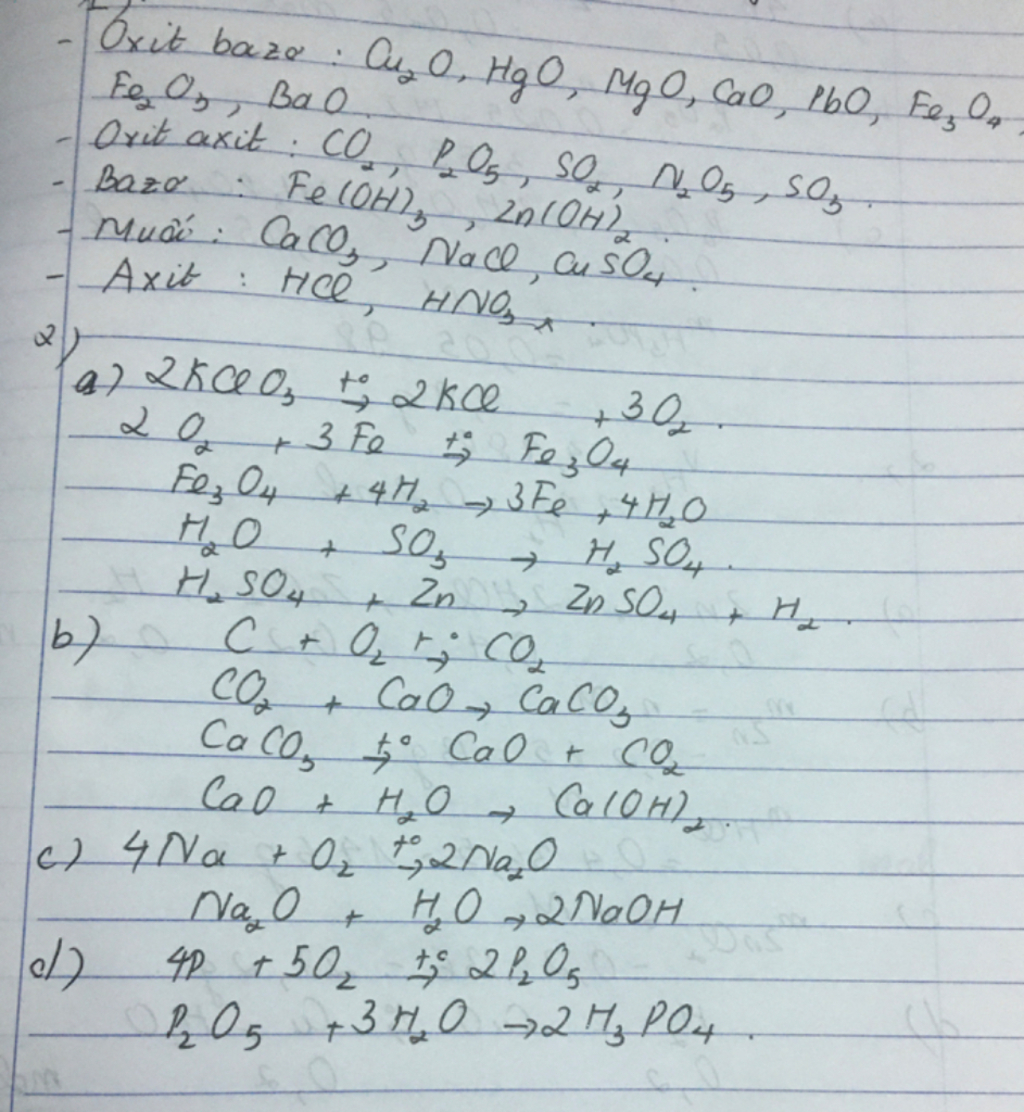 - Oxit bazơ : Cu₂O, HgO, MgO, CaO, PbO, Fe₃O₄,
Fe₂O₃, BaO.
- Oxit axit : CO₂, P₂O₅, SO₂, N₂O₅, SO₃.
- Bazơ : Fe(OH)₃, Zn(OH)₂.
- Muối : CaCO₃, NaCl, CuSO₄.
- Axit : HCl, HNO₃.
2)
a) 2KClO₃ t°→ 2KCl + 3O₂.
2 O₂ + 3Fe t°→ Fe₃O₄
Fe₃O₄ + 4H₂ → 3Fe + 4H₂O
H₂O + SO₃ → H₂SO₄.
H₂SO₄ + Zn → ZnSO₄ + H₂.
b) C + O₂ t°→ CO₂
CO₂ + CaO → CaCO₃
CaCO₃ t°→ CaO + CO₂
CaO + H₂O → Ca(OH)₂.
c) 4Na + O₂ t°→ 2Na₂O
Na₂O + H₂O → 2NaOH
d) 4P + 5O₂ t°→ 2P₂O₅
P₂O₅ + 3H₂O → 2H₃PO₄.